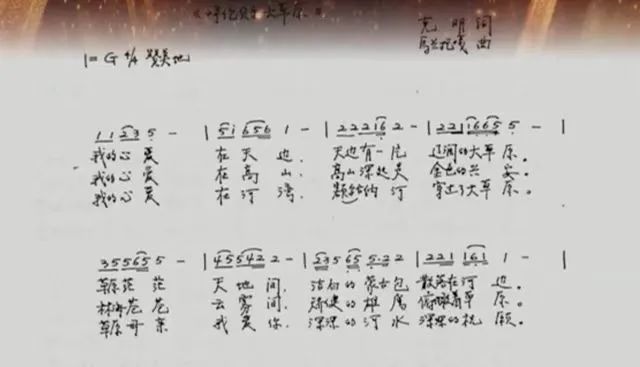 《呼伦贝尔大草原》
克明 词
乌兰托嘎 曲
1=G 4/4 赞美地
1 1 2 3 5 - | 5 1 6 5 6 1 - | 2 2 2 1 6 2 - | 2 2 1 1 6 6 5 5 - |
我的心爱 在天边. 天边有一片 辽阔的大草原。
我的心爱 在高山. 高山深处是 金色的兴安
我的心爱 在河湾. 额尔古纳河 穿过了大草原。
3 5 5 6 5 5 - | 4 5 5 4 2 2 - | 2 3 5 6 5 5·2 2 | 2 2 1 1 6 1 1 - |
草原茫茫 天地间. 洁白的蒙古包 散落在河边。
林海苍苍 云雾间. 矫健的雄鹰 俯瞰着草原。
草原母亲 我爱你. 深深的河水 深深的祝愿。